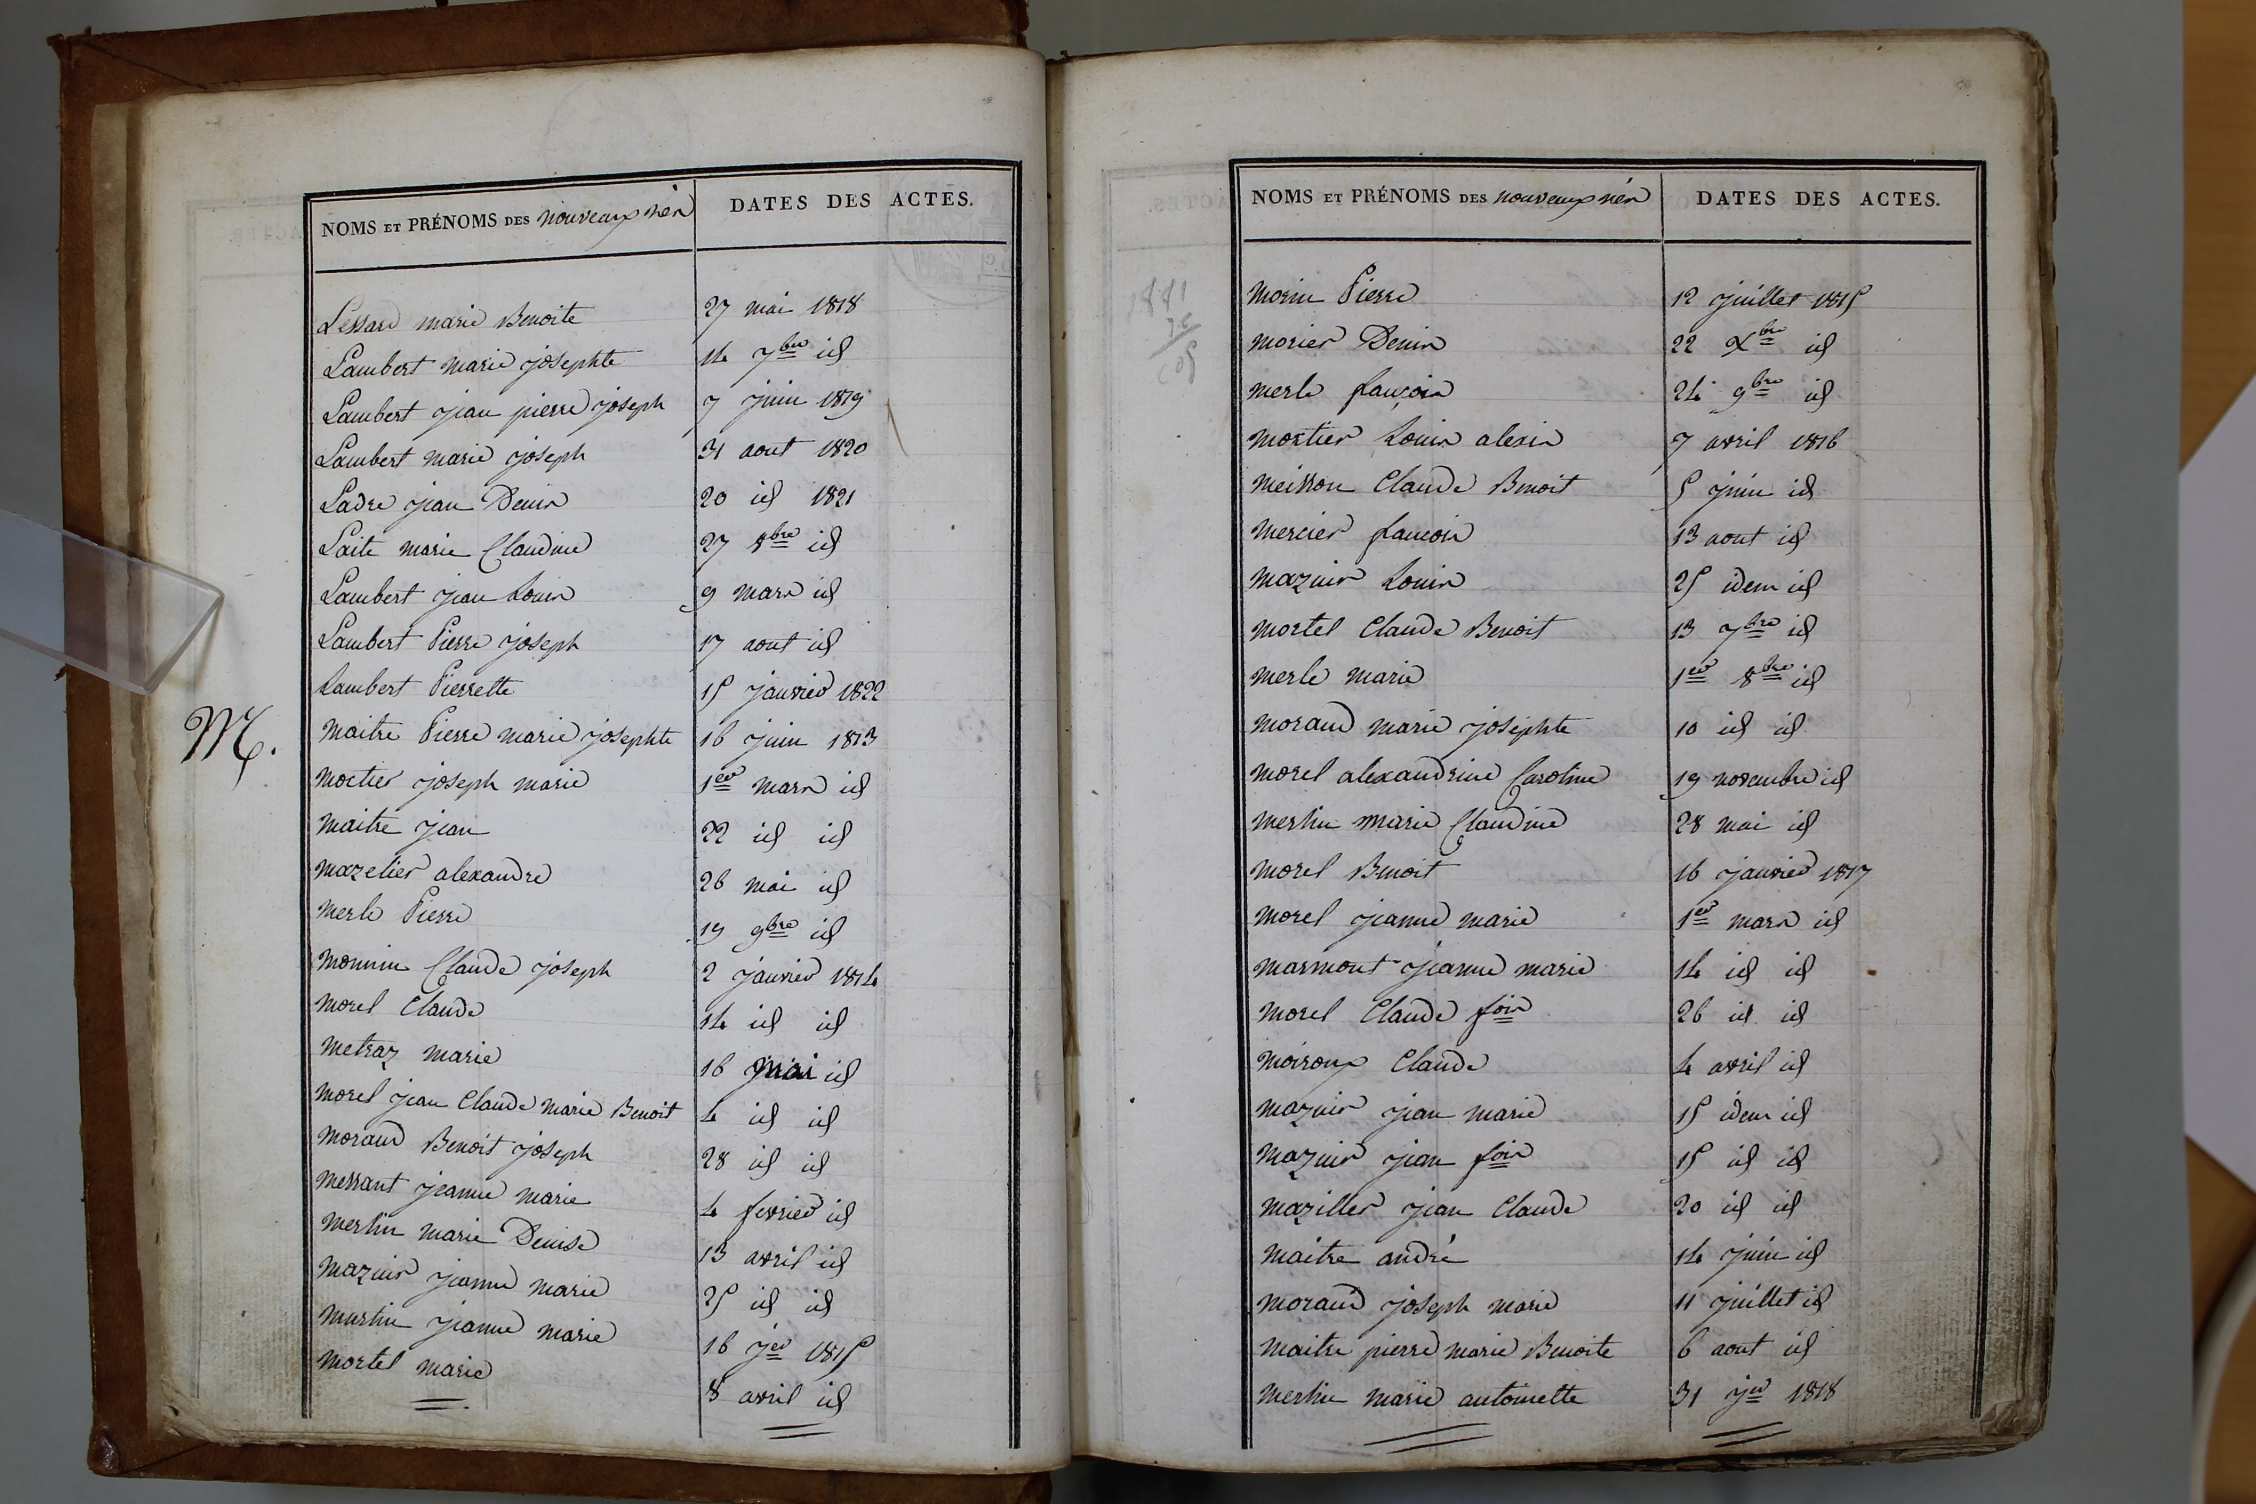 NOMS ET PRÉNOMS DES nouveaux nés DATES DES ACTES.
Lessard marie Benoite 27 mai 1818
Lambert marie josephte 14 7bre id
Lambert jean pierre joseph 7 juin 1819
Lambert marie joseph 31 aout 1820
Ladre jean Denis 20 id 1821
Laite marie Claudine 27 8bre id
Lambert jean Louis 9 mars id
Lambert Pierre joseph 17 aout id
Lambert Pierrette 15 janvier 1822
M.
maitre Pierre marie josephte 16 juin 1813
mortier joseph marie 1er mars id
maitre jean 22 id id
mazelier alexandre 26 mai id
merle Pierre 19 9bre id
monnin Claude joseph 2 janvier 1814
morel Claude 14 id id
metraz marie 16 mai id
morel jean Claude marie Benoit 4 id id
moraud Benoit joseph 28 id id
messant jeanne marie 4 fevrier id
merlin marie Denise 13 avril id
mazuir jeanne marie 25 id id
murlin jeanne marie 16 jer 1815
mortel marie 8 avril id
NOMS ET PRÉNOMS DES nouveaux nés DATES DES ACTES.
morin Pierre 12 juillet 1815
morier Denis 22 Xbre id
merle françois 24 9bre id
mortier Louis alexis 7 avril 1816
meisson Claude Benoit 5 juin id
mercier francois 13 aout id
mazuir Louis 25 idem id
mortel Claude Benoit 13 7bre id
merle marie 1er 8bre id
moraud marie josephte 10 id id
morel alexandrine Caroline 19 novembre id
merlin marie Claudine 28 mai id
morel Benoit 16 janvier 1817
morel jeanne marie 1er mars id
marmont jeanne marie 14 id id
morel Claude fois 26 id id
moiroux Claude 4 avril id
mazuir jean marie 15 idem id
mazuir jean fois 15 id id
maziller jean Claude 20 id id
maitre andré 14 juin id
moraud joseph marie 11 juillet id
maitre pierre marie Benoite 6 aout id
merlin marie antoinette 31 jer 1818